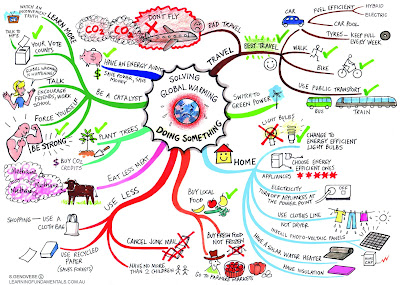 WATCH AN
INCONVENIENT
TRUTH
LEARN MORE
TALK TO
YOUR VOTE
COUNTS
TALK
ENCOURAGE
FRIENDS, WORK,
SCHOOL
FORCE YOURSELF
BE STRONG
BE A CATALYST
HAVE AN ENERGY AUDIT
SAVE POWER, SAVE
MONEY
CO2
CO2
DON'T FLY
BAD TRAVEL
TRAVEL
BEST TRAVEL
CAR
FUEL EFFICIENT
HYBRID
ELECTRIC
CAR POOL
TYRES - KEEP FULL
EVERY WEEK
WALK
BIKE
USE PUBLIC TRANSPORT
BUS
TRAIN
SOLVING
GLOBAL WARMING
DOING SOMETHING
SWITCH TO
GREEN POWER
PLANT TREES
BUY CO2
CREDITS
EAT LESS MEAT
Methane
Methane
USE LESS
SHOPPING
USE A
CLOTH BAG
USE RECYCLED
PAPER
(SAVES FORESTS)
CANCEL JUNK MAIL
HAVE NO MORE
THAN 2 CHILDREN
BUY LOCAL
FOOD
BUY FRESH FOOD
NOT FROZEN
GO TO FARMERS MARKETS
HOME
LIGHT
BULBS
CHANGE TO
ENERGY EFFICIENT
LIGHT BULBS
APPLIANCES
CHOOSE ENERGY
EFFICIENT ONES
ELECTRICITY
TURN OFF APPLIANCES AT
THE POWER POINT
USE CLOTHES LINE
NOT DRYER
INSTALL PHOTO-VOLTAIC PANELS
HAVE A SOLAR WATER HEATER
HAVE INSULATION
S. GENOVESE ©
LEARNINGFUNDAMENTALS.COM.AU